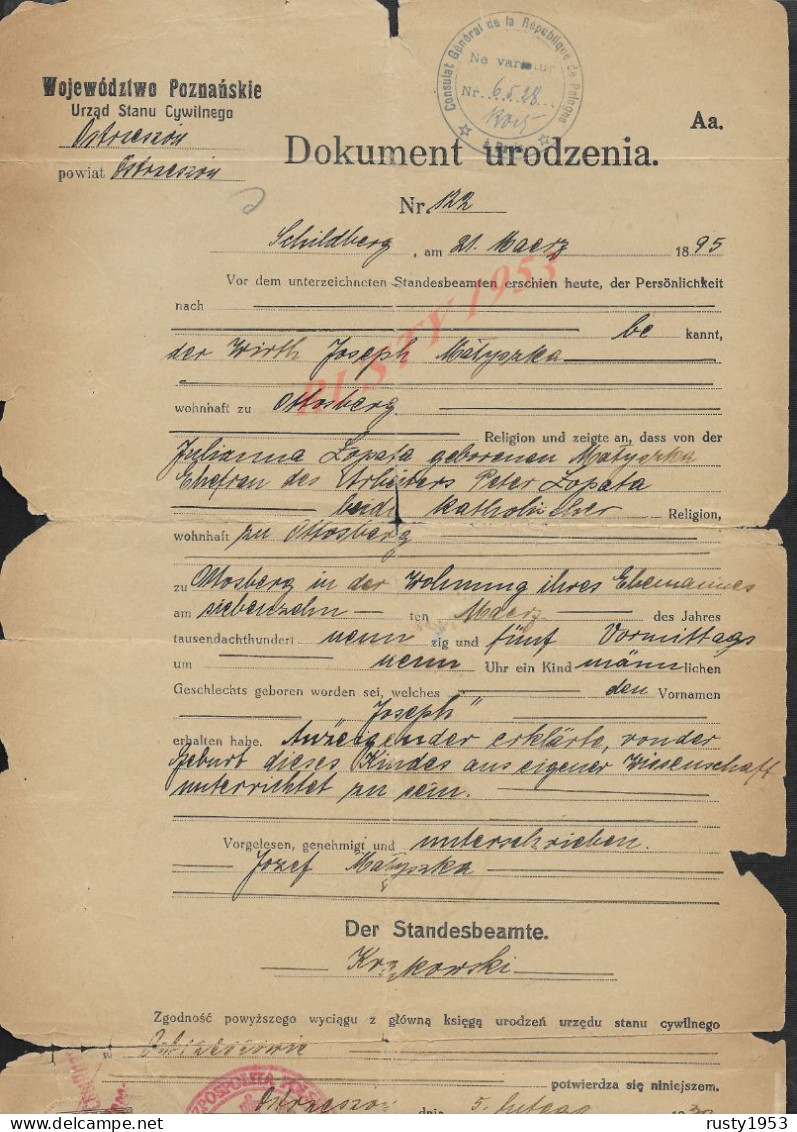 Consulat Général de la République de Pologne
Ne varietur
Nr. 6528
Województwo Poznańskie
Urząd Stanu Cywilnego
Ostrzeszów
powiat Ostrzeszów
Aa.
Dokument urodzenia.
Nr 122
Schildberg, am 21. Maerz 1895
Vor dem unterzeichneten Standesbeamten erschien heute, der Persönlichkeit
nach
be kannt,
der Wirth Joseph Małyszka
wohnhaft zu Ottosberg
Religion und zeigte an, dass von der
Julianna Łopata geborenen Małyszka
Ehefrau des Arbeiters Peter Łopata
beide katholischer Religion,
wohnhaft zu Ottosberg
zu Ottosberg in der Wohnung ihres Ehemannes
am siebenzehn ten Maerz des Jahres
tausendachthundert neun zig und fünf Vormittags
um neun Uhr ein Kind männlichen
Geschlechts geboren worden sei, welches den Vornamen
Joseph"
erhalten habe. Anzeigender erklärte, von der
Geburt dieses Kindes aus eigener Wissenschaft
unterrichtet zu sein.
Vorgelesen, genehmigt und unterschrieben.
Józef Małyszka
Der Standesbeamte.
Krąkowski
Zgodność powyższego wyciągu z główną księgą urodzeń urzędu stanu cywilnego
w Ostrzeszowie
potwierdza się niniejszem.
Ostrzeszów dnia 5. lutego 1930
RUSTY 1953
rusty1953